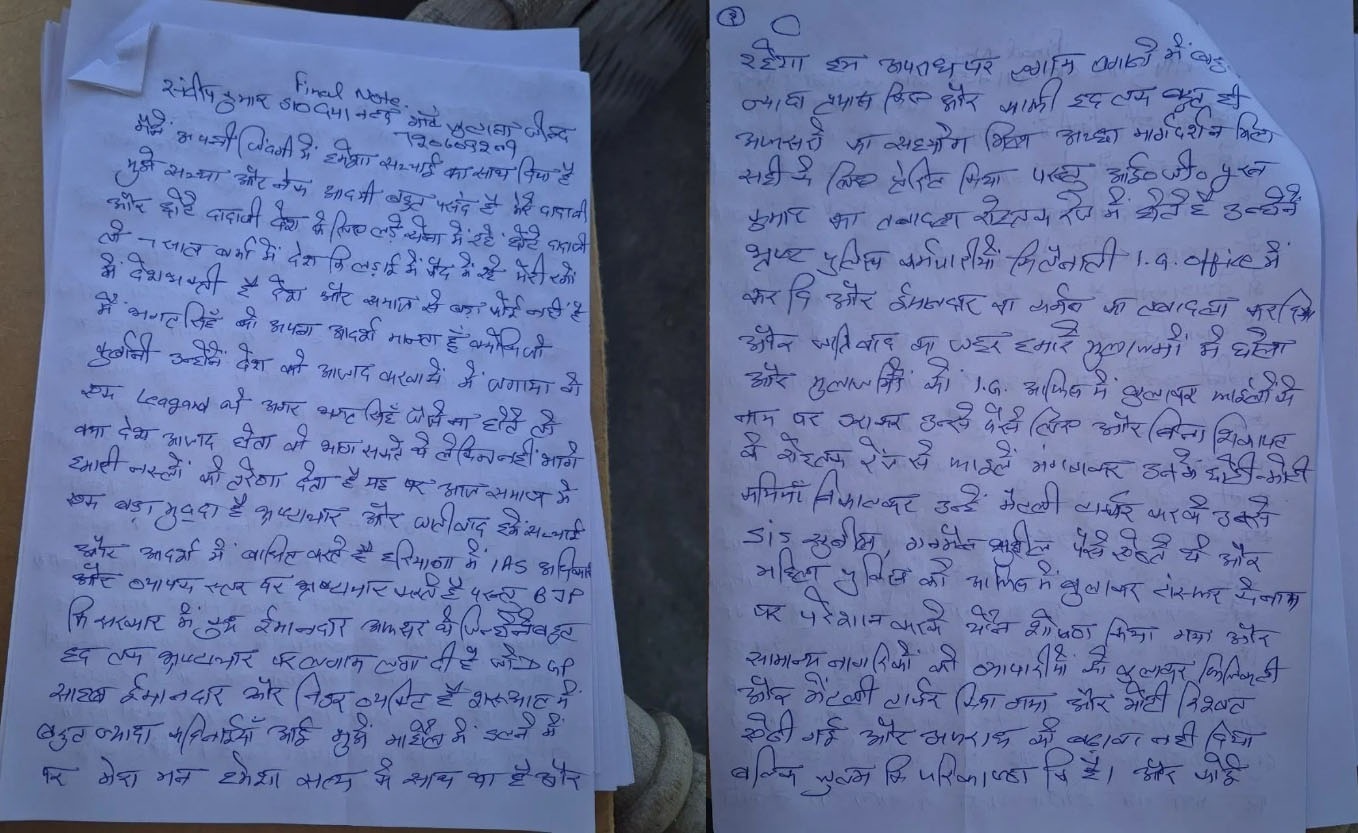 Final Note.
संदीप कुमार S/O दयानन्द गांव जुलाना जीन्द
मैंने अपनी जिंदगी में हमेशा सच्चाई का साथ दिया है
मुझे सच्चा और नेक आदमी बहुत पसंद है मेरे दादाजी
और छोटे दादाजी देश के लिए लड़े सेना में रहे छोटे दादाजी
तो 7 साल बर्मा में देश कि लड़ाई में कैद में रहे मेरी रगों
में देशभक्ती है देश और समाज से बड़ा कोई नहीं है
मैं भगत सिहँ को अपना आदर्श मानता हूँ क्योंकि जो
कुर्बानी उन्होंने देश को आजाद करवाने में लगाया वो
एक Leagand थे अगर भगत सिहँ जैसे ना होते तो
क्या देश आजाद होता वो भाग सकते थे लेकिन नहीं भागे
हमारी नस्लों को प्रेरणा देता है यह पर आज समाज में
एक बड़ा मुद्दा है भ्रष्टाचार और जातीवाद हमें सच्चाई
और आदर्श में बाधित करते है हरियाणा में IAS अधिकारी
और व्यापक स्तर पर भ्रष्टाचार करते है परन्तु BJP
कि सरकार में कुछ ईमानदार अफसर थे जिन्होंने बहुत
हद तक भ्रष्टाचार पर लगाम लगा दी है जो DGP
साहब ईमानदार और निडर व्यक्ति है शुरूआत में
बहुत ज्यादा कठिनाईयाँ आई मुझे माहौल में ढलने में
पर मेरा मन हमेशा सत्य के साथ था है और
२
रहेगा हम अपराध पर लगाम लगाने में बहुत
ज्यादा प्रयास किए और काफी हद तक बहुत ही
अफसरों का सहयोग मिला अच्छा मार्गदर्शन मिला
सही के लिए प्रेरित किया परन्तु आई०जी० पूरन
कुमार का तबादला रोहतक रेंज में होते है उन्होंने
भ्रष्ट पुलिस कर्मचारीयों कि तैनाती I.G. office में
कर दि और ईमानदार का तबादला कर दिया
और जातिवाद का जहर हमारे मुलाजमों में घोला
और मुलाजमों को I.G. ऑफिस में बुलाकर फाइलों के
नाम पर डराकर उनसे पैसे लिए और बिना शिकायत
के रोहतक रेंज से फाइलें मंगवाकर उनके छोटी-मोटी
कमियाँ निकालकर उन्हें मैंटली टार्चर करके उनसे
सुशील पैसे ऐंठते थे और
महिला पुलिस को आफिस में बुलाकर ट्रांसफर के नाम
पर परेशान करके यौन शोषण किया गया और
सामान्य नागरिकों को व्यापारीयों को बुलाकर
और मैंटली टार्चर किया गया और मोटी रिश्वत
ऐंठी गई और अपराध को बढ़ावा नहीं दिया
बल्कि जुल्म कि पराकाष्ठा कि है। और कोई